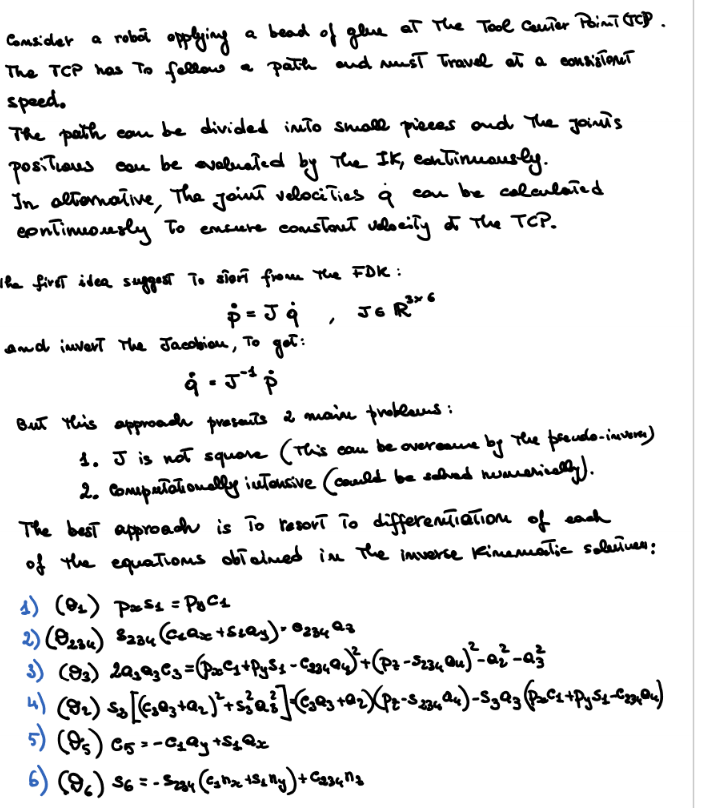 Consider a robot applying a bead of glue at the Tool Center Point (TCP).
The TCP has to follow a path and must travel at a consistent
speed.
The path can be divided into small pieces and the joints
positions can be evaluated by the IK, continuously.
In alternative, the joint velocities q̇ can be calculated
continuously to ensure constant velocity of the TCP.
The first idea suggest to start from the FDK:
ṗ = J q̇ , J ∈ ℝ³ˣ⁶
and invert the Jacobian, to get:
q̇ = J⁻¹ ṗ
But this approach presents 2 main problems:
1. J is not square (this can be overcome by the pseudo-inverse)
2. Computationally intensive (could be solved numerically).
The best approach is to resort to differentiation of each
of the equations obtained in the inverse kinematic solution:
1) (θ₁) pₓs₁ = pᵧc₁
2) (θ₂₃₄) s₂₃₄(c₁aₓ+s₁aᵧ) = c₂₃₄a₃
3) (θ₃) 2a₂a₃c₃ = (pₓc₁+pᵧs₁-c₂₃₄a₄)²+(p_z-s₂₃₄a₄)²-a₂²-a₃²
4) (θ₂) s₂[(c₃a₃+a₂)²+s₃²a₃²]=(c₃a₃+a₂)(p_z-s₂₃₄a₄)-s₃a₃(pₓc₁+pᵧs₁-c₂₃₄a₄)
5) (θ₅) c₅ = -c₁aᵧ+s₁aₓ
6) (θ₆) s₆ = -s₂₃₄(c₁nₓ+s₁nᵧ)+c₂₃₄n₃